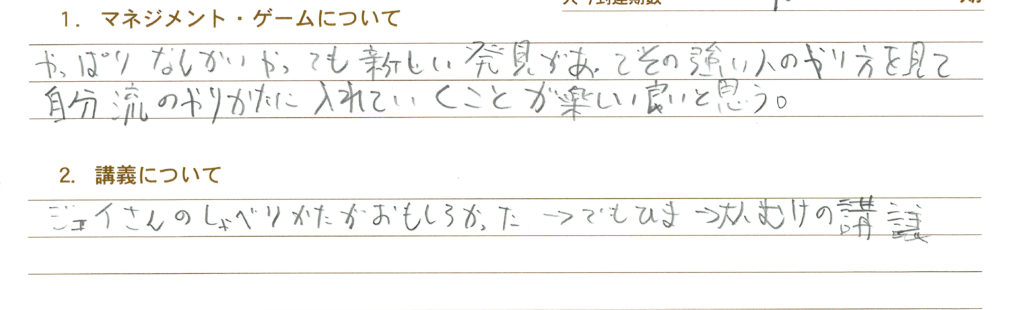 1. マネジメント・ゲームについて
やっぱりなんかいやっても新しい発見があってその強い人のやり方を見て
自分流のやりかたに入れていくことが楽しい良いと思う。
2. 講義について
ジェイさんのしゃべりかたがおもしろかった →でもひま →大人むけの講義